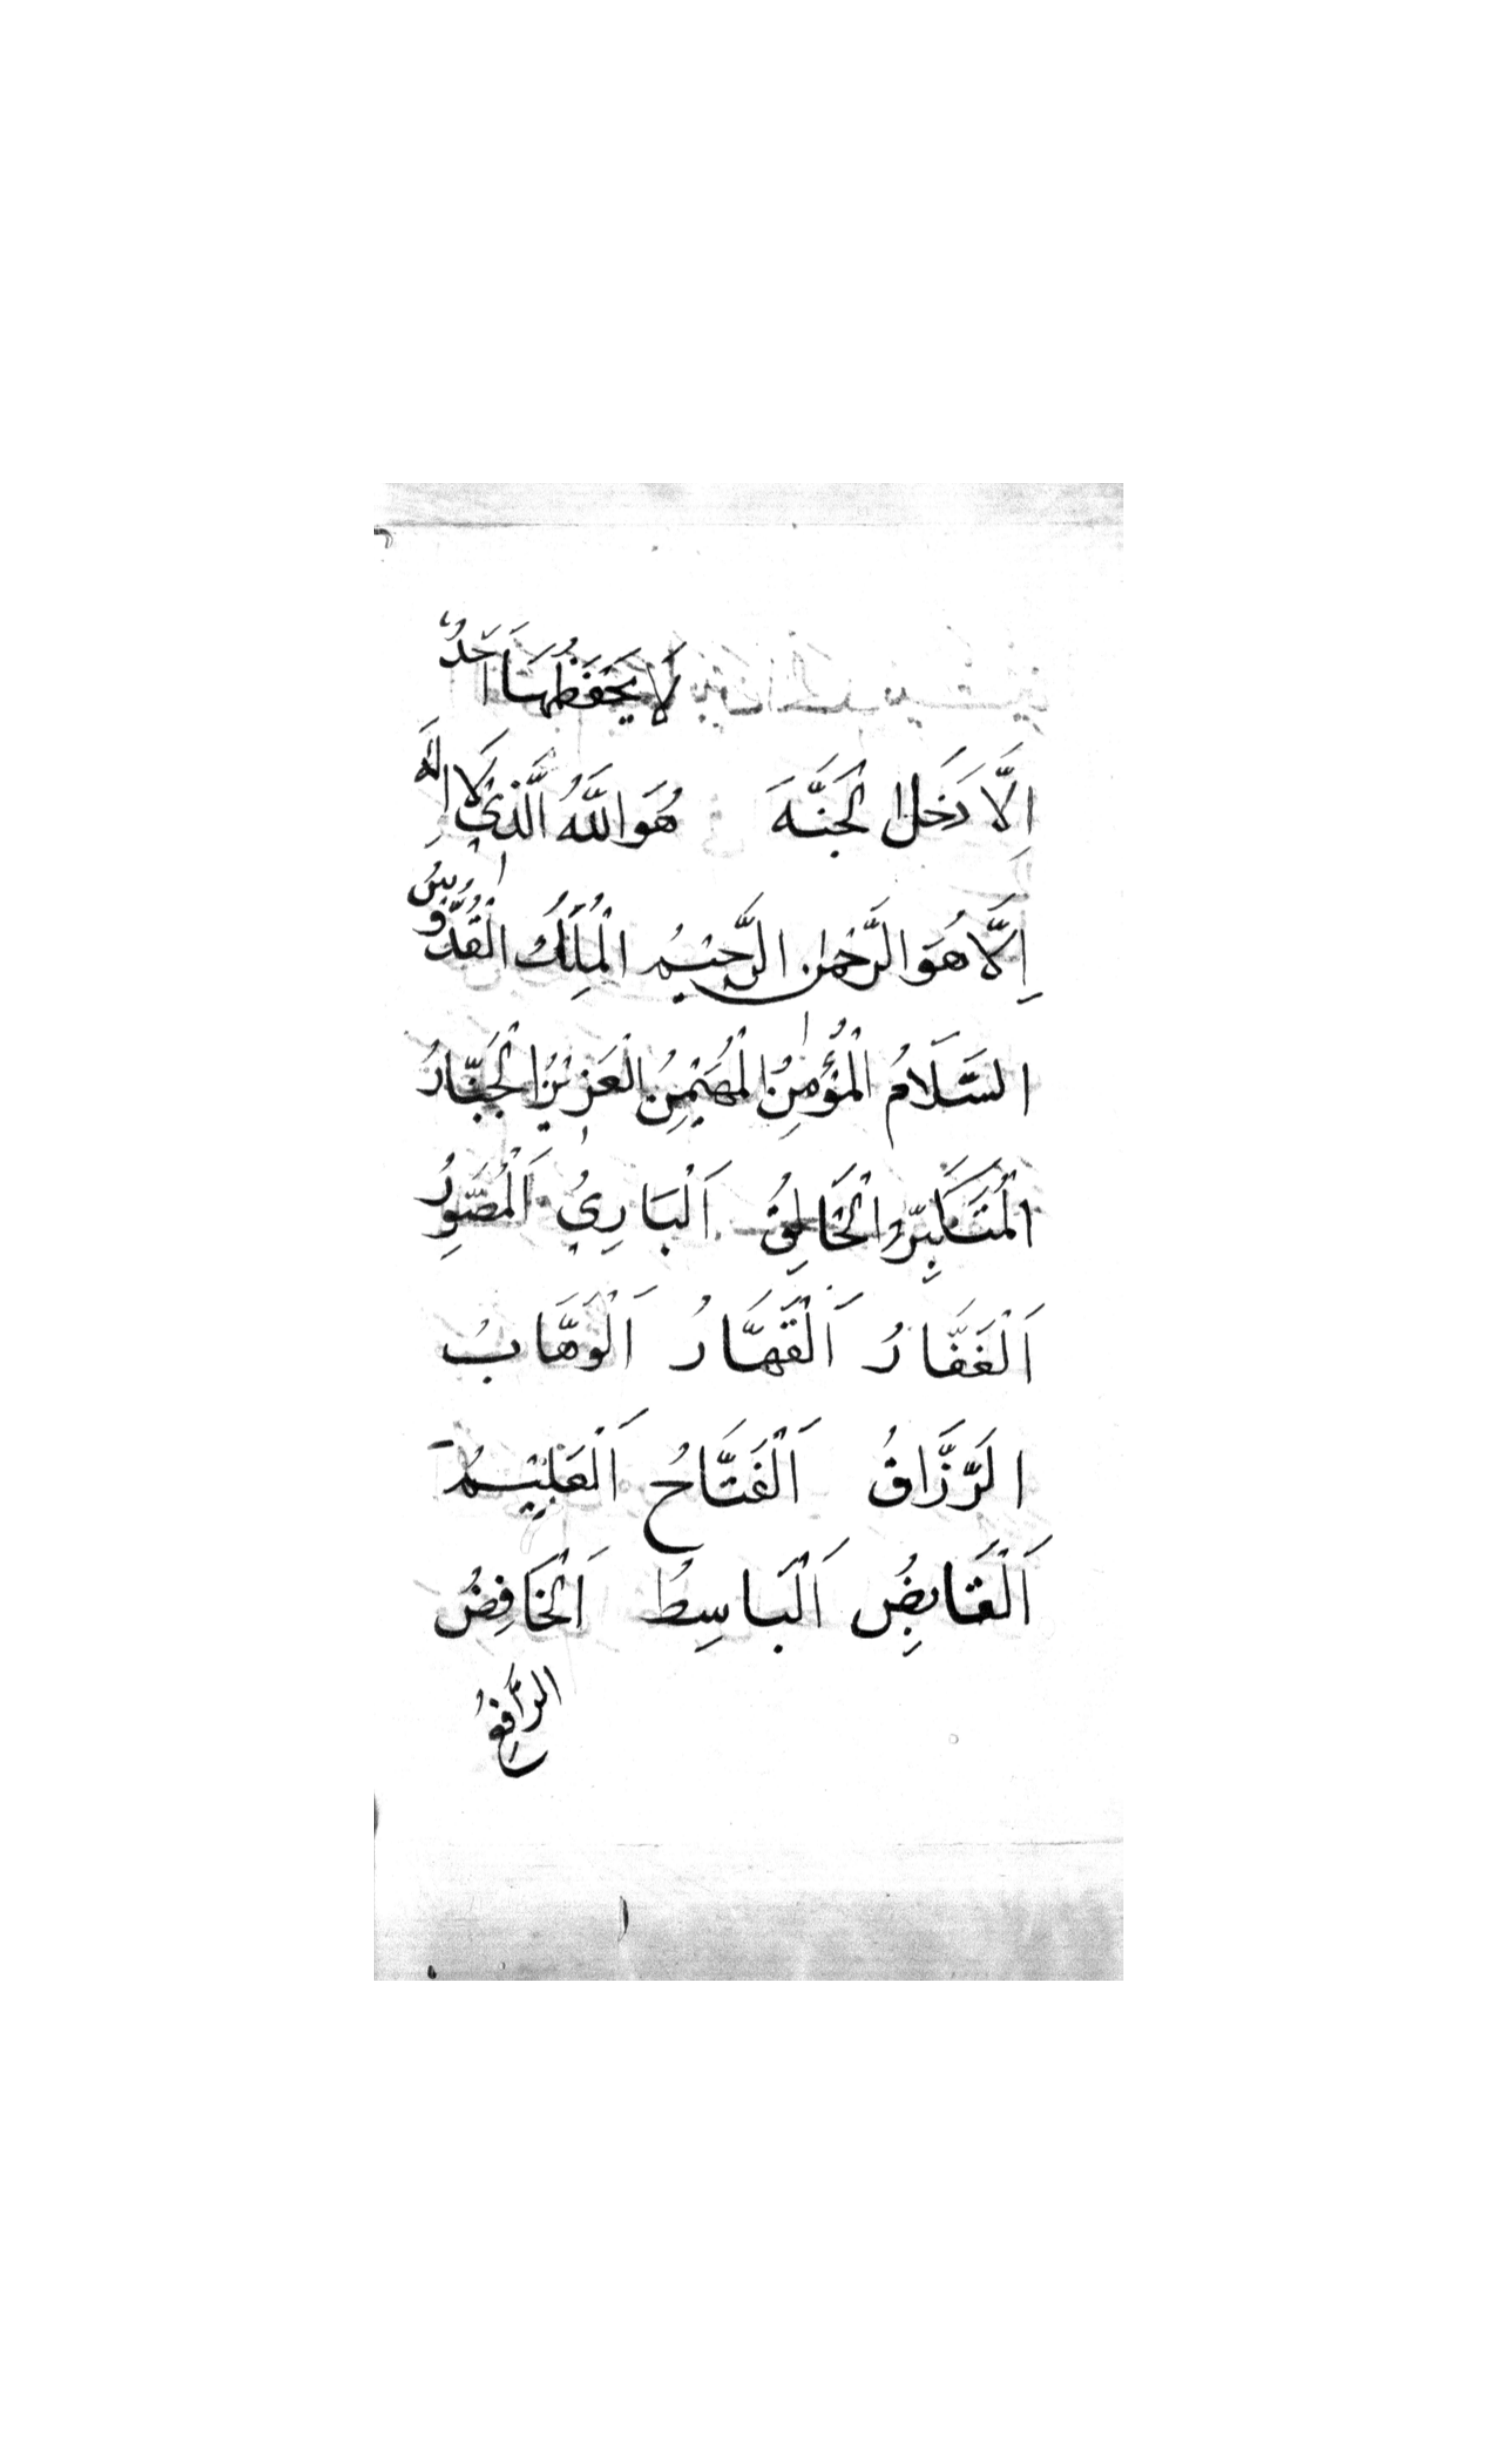 لَا يَحْفَظُهَا اَحَدٌ
اِلَّا دَخَلَ الْجَنَّةَ هُوَ اللَّهُ الَّذِي لَا اِلَهَ
اِلَّا هُوَ الرَّحْمٰنُ الرَّحِيْمُ الْمَلِكُ الْقُدُّوسُ
السَّلَامُ الْمُؤْمِنُ الْمُهَيْمِنُ الْعَزِيْزُ الْجَبَّارُ
الْمُتَكَبِّرُ الْخَالِقُ اَلْبَارِيُ اَلْمُصَوِّرُ
اَلْغَفَّارُ اَلْقَهَّارُ اَلْوَهَّابُ
الرَّزَّاقُ اَلْفَتَّاحُ اَلْعَلِيْمُ
اَلْقَابِضُ اَلْبَاسِطُ اَلْخَافِضُ
الرَّافِعُ